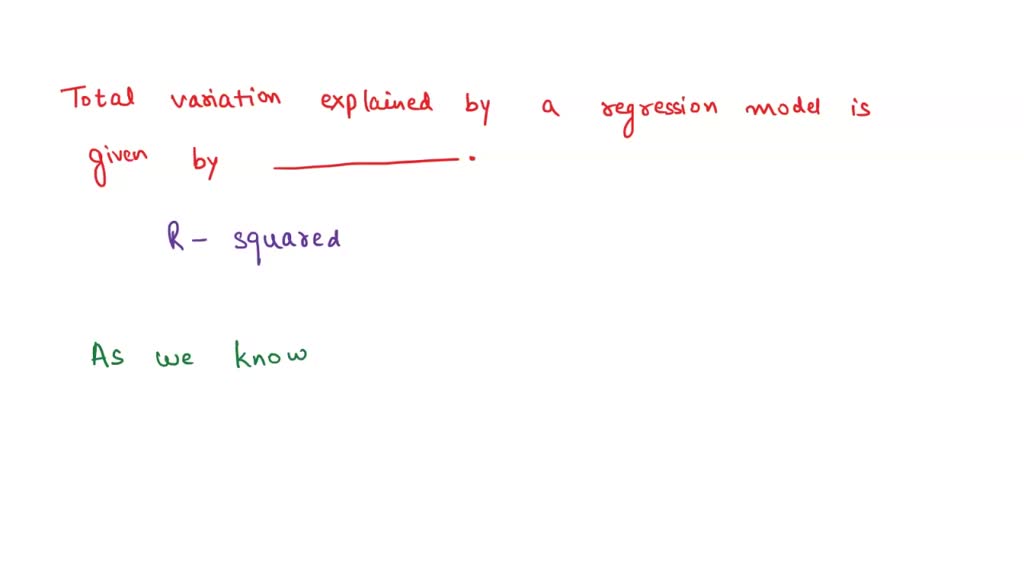 Total variation explained by a regression model is
given by ________.
R- squared
As we know